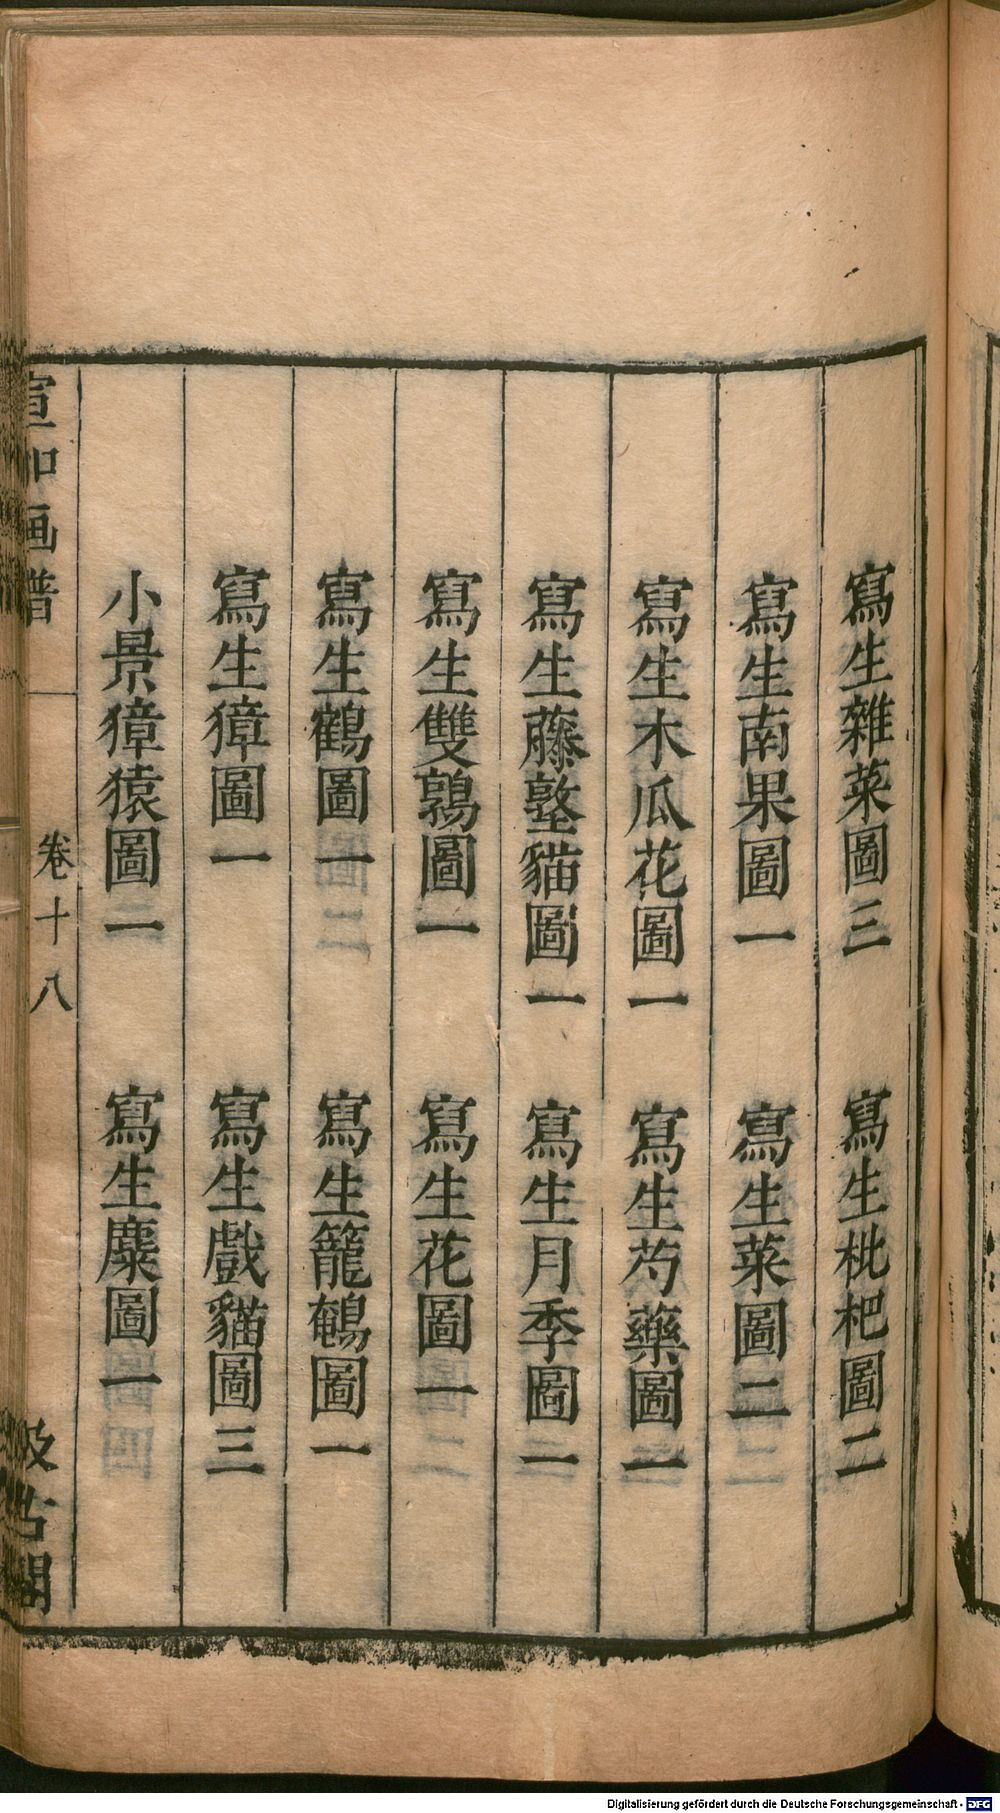 寫生雜菜圖三　寫生枇杷圖二
寫生南果圖一　寫生菜圖二
寫生木瓜花圖一　寫生芍藥圖一
寫生藤墪貓圖一　寫生月季圖一
寫生雙鶉圖一　寫生花圖一
寫生鶴圖一　寫生籠鵪圖一
寫生獐圖一　寫生戲貓圖三
小景獐猿圖一　寫生麋圖一
宣和画譜　卷十八　汲古閣
Digitalisierung gefördert durch die Deutsche Forschungsgemeinschaft - DFG